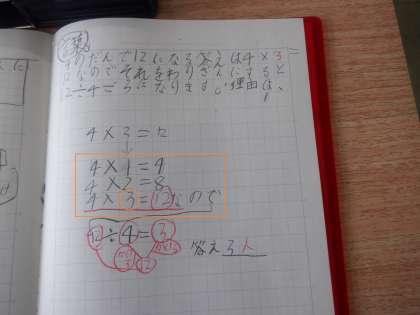 4のだんで12になる答えは4×3
なのでそれをわりざんにすると
12÷4=3になります。理由は、
4×3=12
↓
4×1=4
4×2=8
4×3=12なので
12÷4=3
答え3人